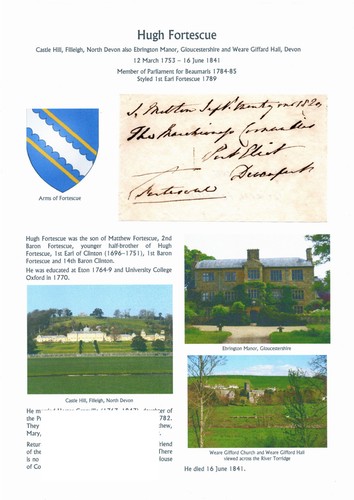 Hugh Fortescue
Castle Hill, Filleigh, North Devon also Ebrington Manor, Gloucestershire and Weare Giffard Hall, Devon
12 March 1753 – 16 June 1841
Member of Parliament for Beaumaris 1784-85
Styled 1st Earl Fortescue 1789
S. Molton Sept. twenty one 182
The Marchioness Cornwallis
Port Eliot
Devonport
Fortescue
Arms of Fortescue
Hugh Fortescue was the son of Matthew Fortescue, 2nd
Baron Fortescue, younger half-brother of Hugh
Fortescue, 1st Earl of Clinton (1696–1751), 1st Baron
Fortescue and 14th Baron Clinton.
He was educated at Eton 1764-9 and University College
Oxford in 1770.
Ebrington Manor, Gloucestershire
Castle Hill, Filleigh, North Devon
He of
the P 782.
They hew,
Mary,
Retur riend
of the There
is no House
of Co
Weare Giffard Church and Weare Giffard Hall
viewed across the River Torridge
He died 16 June 1841.